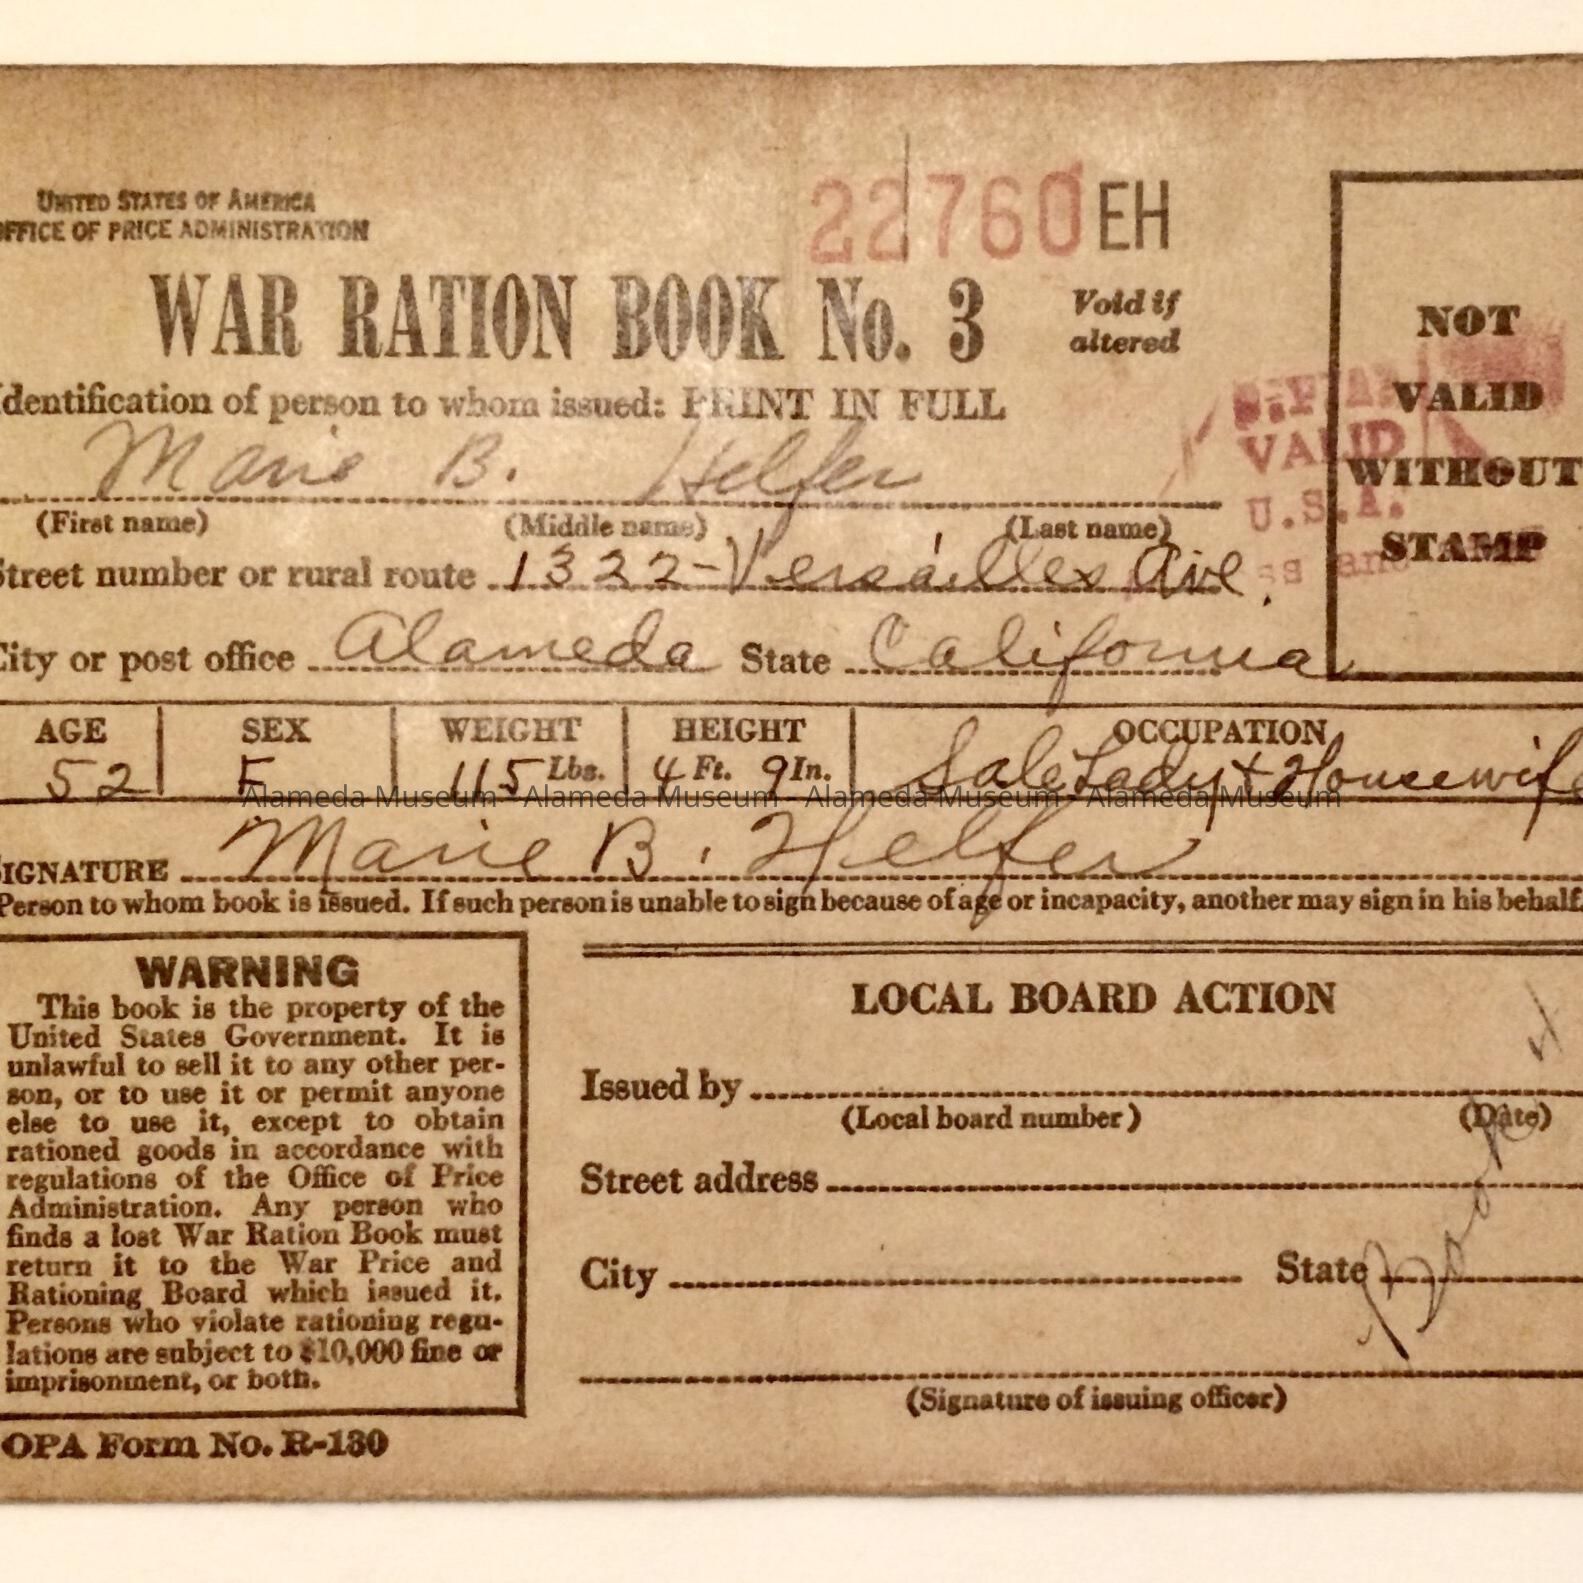 UNITED STATES OF AMERICA
OFFICE OF PRICE ADMINISTRATION
22760 EH
WAR RATION BOOK No. 3
Void if
altered
Identification of person to whom issued: PRINT IN FULL
Marie B. Helfer
(First name) (Middle name) (Last name)
Street number or rural route 1322-Versailles Ave.
City or post office Alameda State California
NOT
VALID
WITHOUT
STAMP
VALID
U.S.A.
AGE SEX WEIGHT HEIGHT OCCUPATION
52 F 115 Lbs. 4 Ft. 9 In. SaleLady + Housewife
Alameda Museum Alameda Museum Alameda Museum Alameda Museum
SIGNATURE Marie B. Helfer
Person to whom book is issued. If such person is unable to sign because of age or incapacity, another may sign in his behalf.
WARNING
This book is the property of the
United States Government. It is
unlawful to sell it to any other per-
son, or to use it or permit anyone
else to use it, except to obtain
rationed goods in accordance with
regulations of the Office of Price
Administration. Any person who
finds a lost War Ration Book must
return it to the War Price and
Rationing Board which issued it.
Persons who violate rationing regu-
lations are subject to $10,000 fine or
imprisonment, or both.
OPA Form No. R-130
LOCAL BOARD ACTION
Issued by
(Local board number) (Date)
Street address
City State
(Signature of issuing officer)